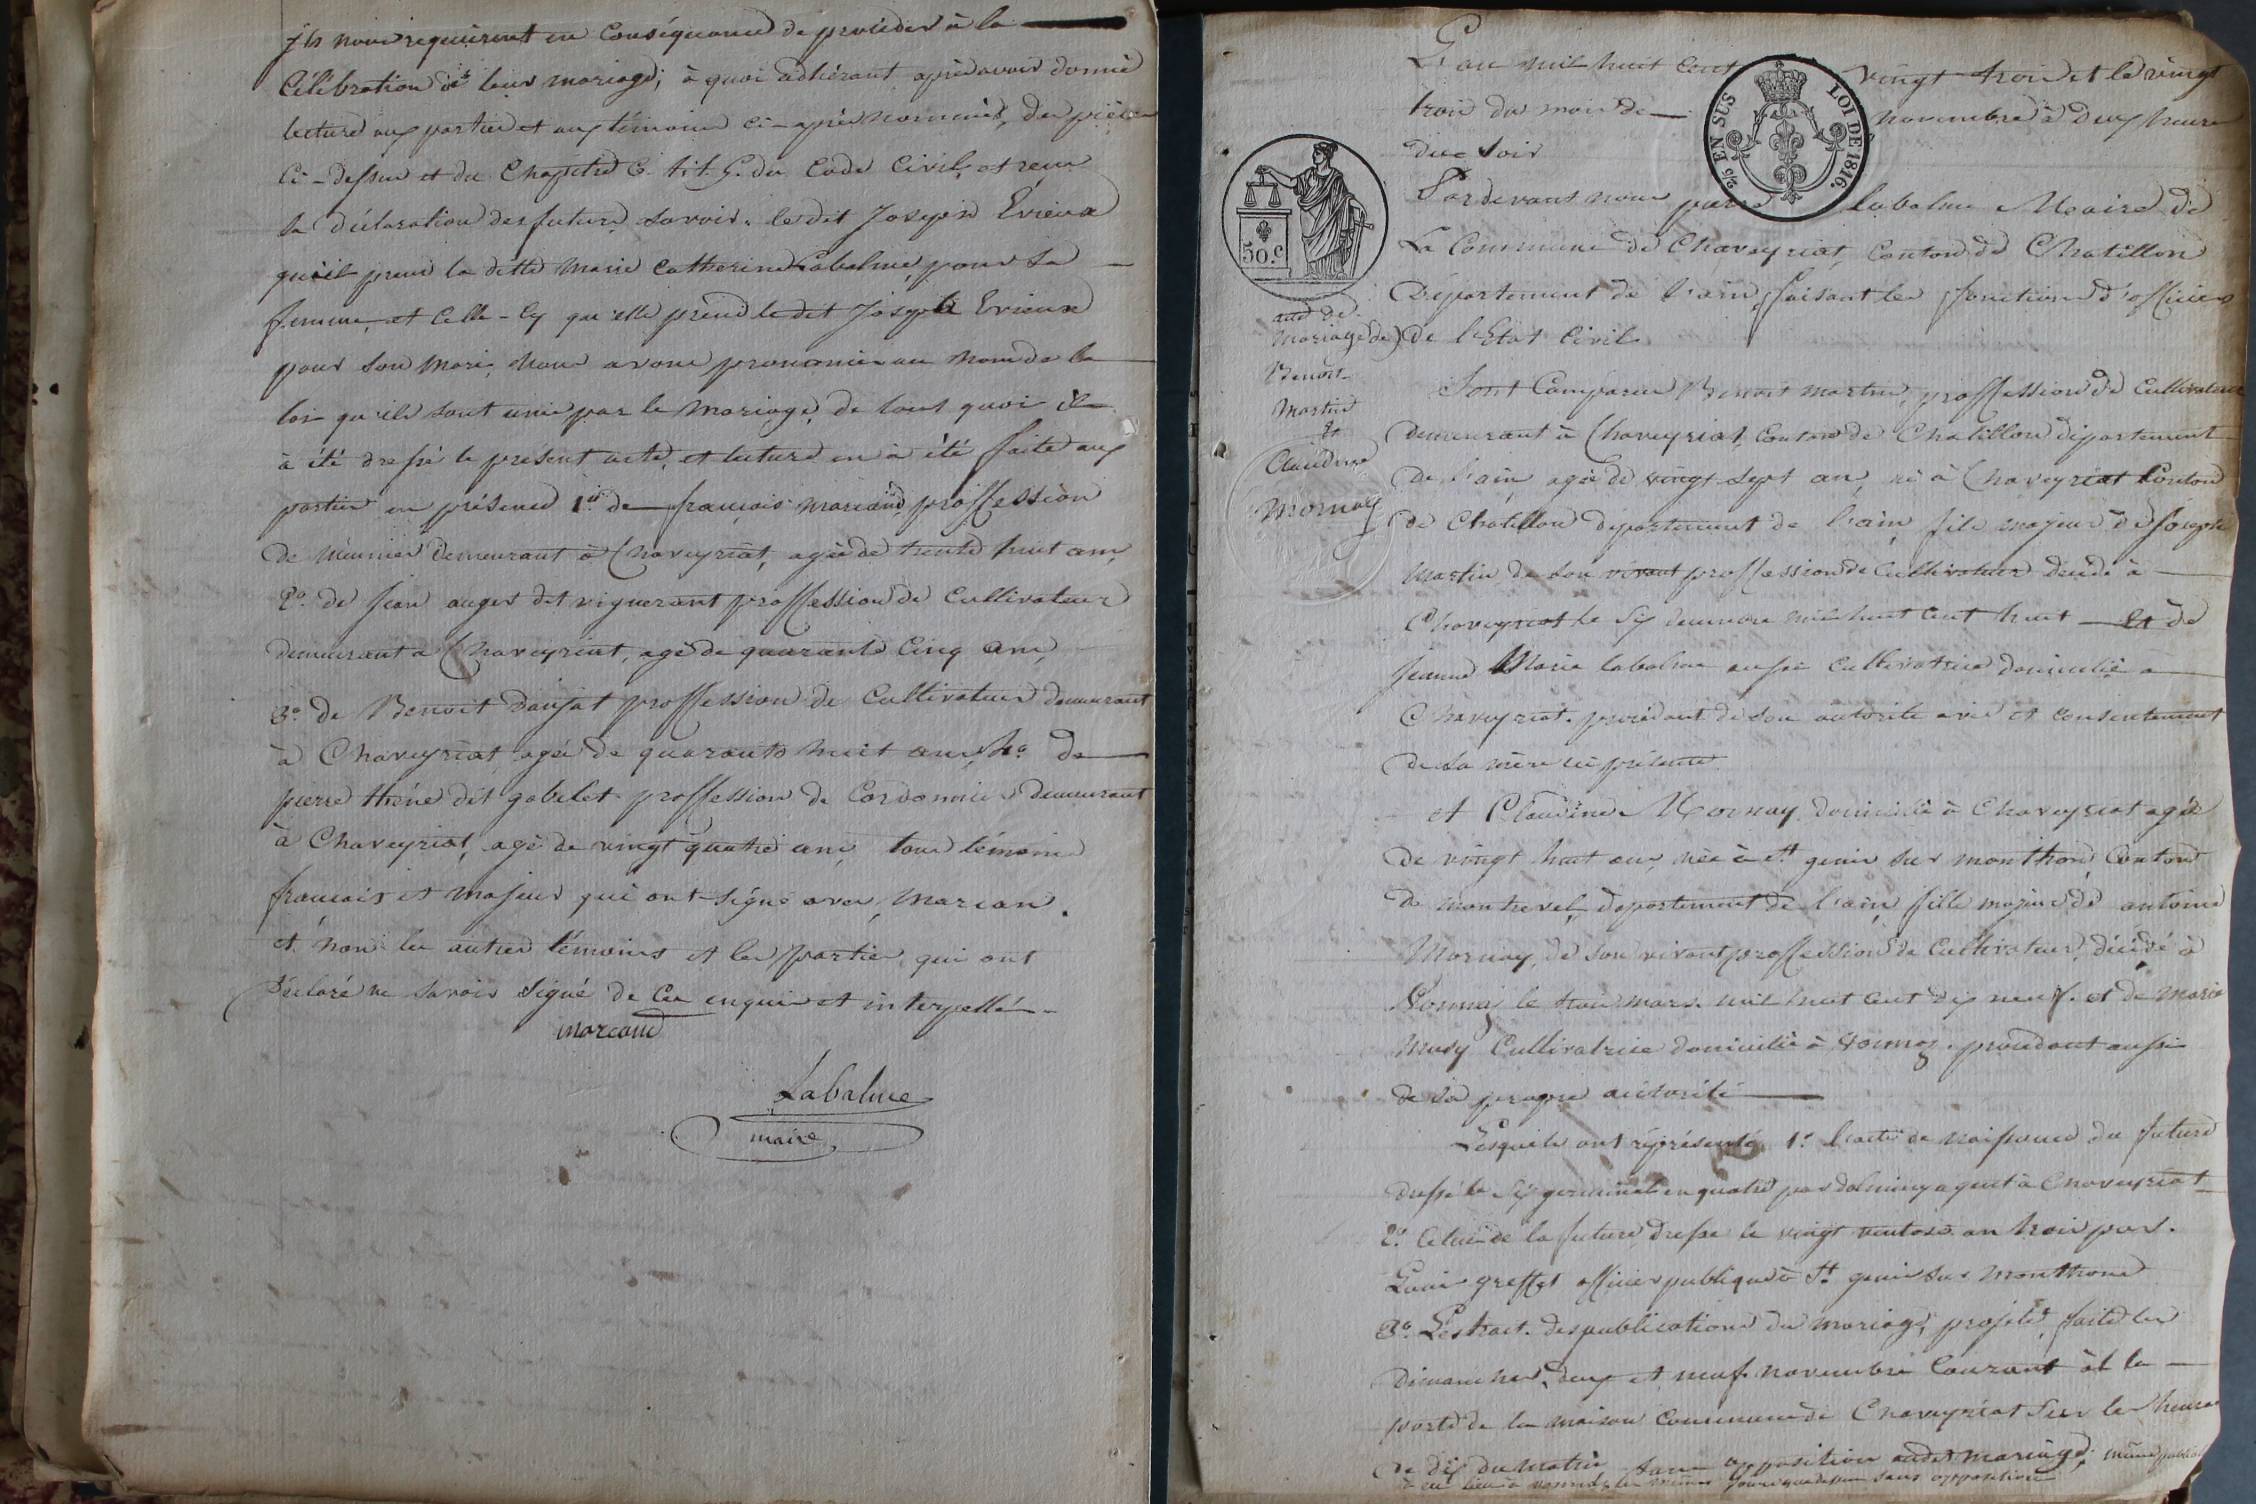 ils nous requierent en Conséquence de procéder à la
Célébration de leur mariage; à quoi adhérant après avoir donné
lecture aux parties et aux témoins ci-après nommés, des pièces
Ci-dessus et du Chapitre 6. tit. 5. du Code Civil, et reçu
la déclaration des futurs, savoir, le dit Joseph Evieux
qu'il prend la ditte Marie Catherine Labalme pour sa
femme, et Celle-Cy qu'elle prend le dit Joseph Evieux
pour son mari, Nous avons prononcé au nom de la
loi qu'ils sont unis par le mariage, de tout quoi il
à été dressé le présent acte, et lecture en à été faite aux
parties en présence 1º de françois marcand proffession
de meunier demeurant à Chaveyriat, agé de trente huit ans,
2º. de jean auger dit vignerant proffession de Cultivateur
demeurant à Chaveyriat, agé de quarante Cinq ans,
3º. de Benoit Danjat proffession de Cultivateur demeurant
à Chaveyriat, agée de quarante huit ans, 4º de
pierre théné dit gobelet proffession de Cordonnier demeurant
à Chaveyriat, agé de vingt quatre ans, tous témoins
français et majeur qui ont signé avec, Marcan.
et non les autres témoins et les parties, qui ont
déclaré ne savoir signé de Ce enquis et interpellés
marcand
Labalme
maire
L'an mil huit Cent vingt trois et le vingt
trois du mois de novembre à deux heures
du Soir
2/5 EN SUS LOI DE 1816.
50.c
Pardevant nous pierre Labalme Maire de
La Commune de Chaveyriat, Canton de Chatillon
Département de l'ain, faisant les fonctions d'officier
de l'Etat Civil.
mariage de
Benoit
Martin
Et
Claudine
Mornay
Sont Comparus Benoit martin, proffession de Cultivateur
demeurant à Chaveyriat, Canton de Chatillon département
de l'ain, agée de vingt sept ans, né à Chaveyriat Canton
de Chatillon département de l'ain, fils majeur de Joseph
martin de son vivant proffession de Cultivateur décédé à
Chaveyriat le six mil huit Cent huit Et de
jeanne Marie labalme aussi Cultivatrice domiciliée à
Chaveyriat. procédant de son autorité avis et consentement
de sa mère ici présente.
et Claudine Mornay, domicilié à Chaveyriat agée
de vingt huit ans, née à St. genis sur monthons, Canton
de montrevel, département de l'ain, fille majeure de antoine
Mornay, de son vivant proffession de Cultivateur, décédé à
Vonnas le trois mars mil huit Cent dix neuf. et de Marie
Musy Cultivatrice domicilié à Vonnas. procédant aussi
de sa propre autorité
Lesquels ont représenté 1º l'acte de naissance du futur
dressé le Six germinal en quatre par agent à Chaveyriat
2º. Celui de la future dressé le vingt ventose an trois par.
greffet officier publique à St. genis sur Monthons
3º. L'extrait des publications du mariage projeté, faite les
dimanches, deux et neuf novembre Courant à la
porte de la maison Commune de Chaveyriat sur les heures
de dix du matin sans opposition audit mariage; même publication
à eu lieu à vonnas les mêmes jours que dessus sans opposition